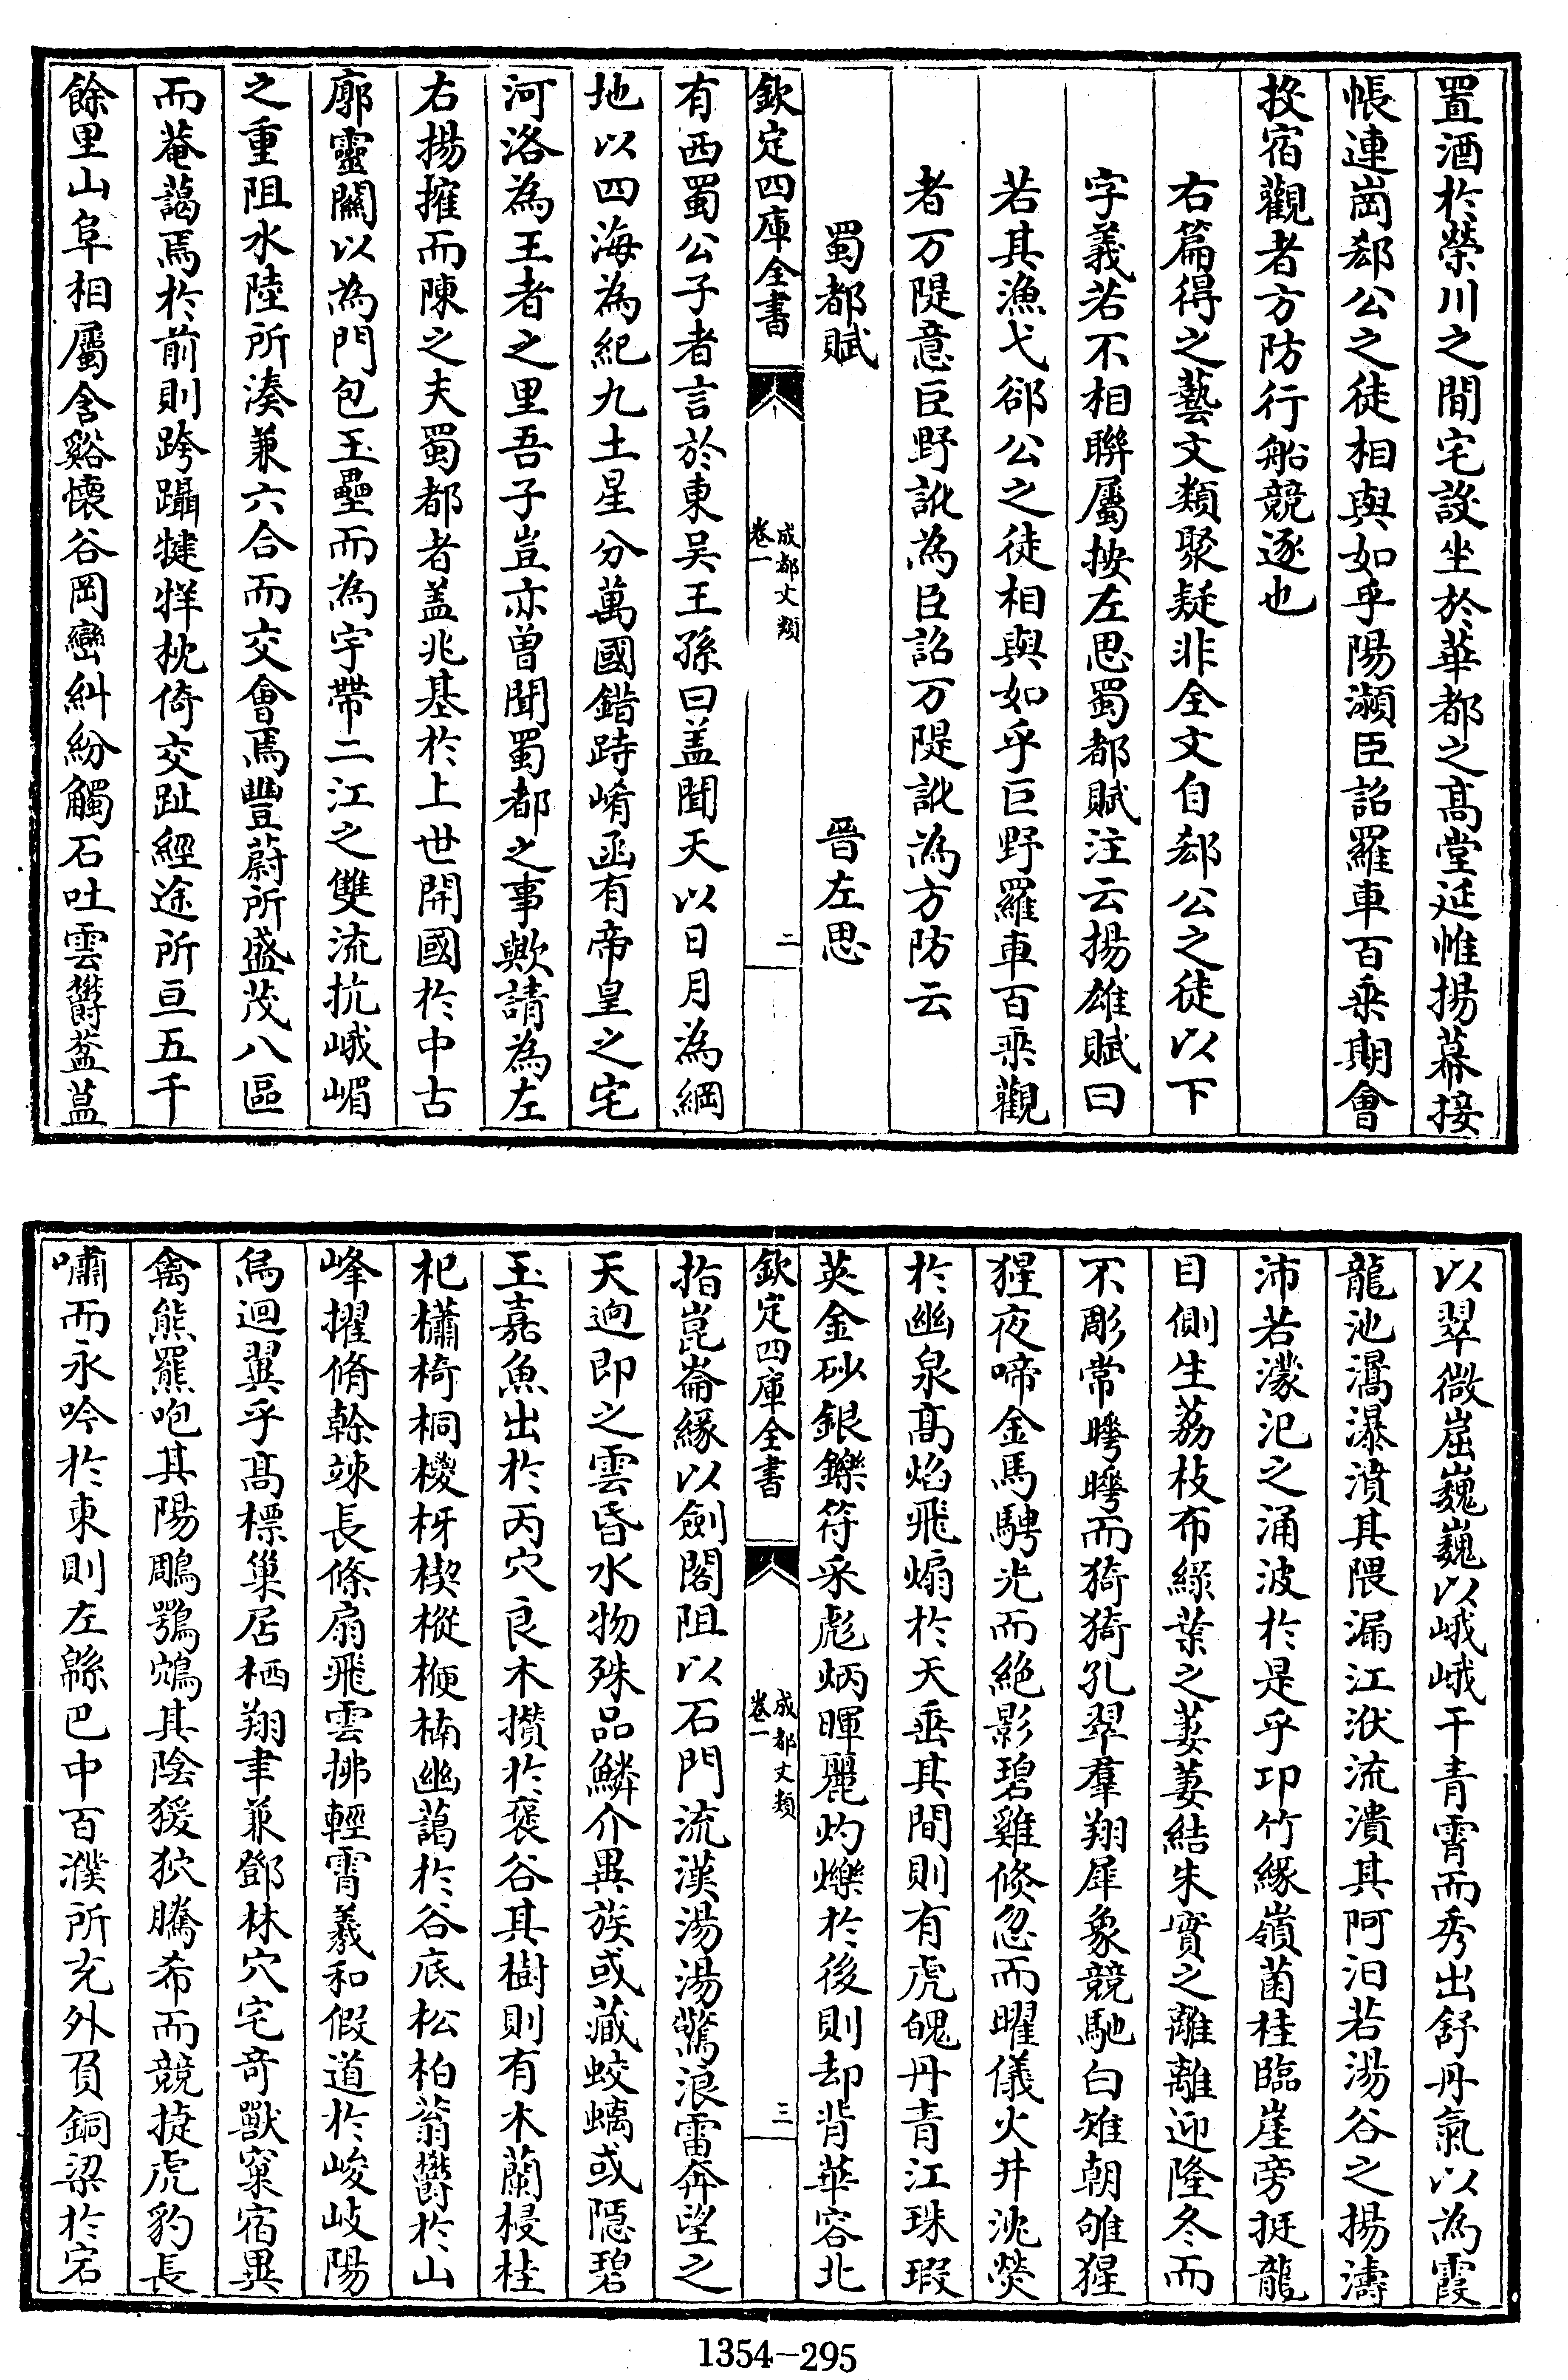 置酒於榮川之閒宅設坐於華都之髙堂延帷揚幕接
帳連崗郄公之徒相與如乎陽瀕臣詔羅車百乘期會
投宿觀者方防行船競逐也
右篇得之藝文類聚疑非全文自郄公之徒以下
字義若不相聯屬按左思蜀都賦注云揚雄賦曰
若其漁弋郤公之徒相與如乎巨野羅車百乘觀
者万隄意巨野訛為臣詔万隄訛為方防云
蜀都賦 晉左思
欽定四庫全書 成都文類 卷一 二
有西蜀公子者言於東吴王孫曰盖聞天以日月為綱
地以四海為紀九土星分萬國錯跱崤函有帝皇之宅
河洛為王者之里吾子豈亦曾聞蜀都之事歟請為左
右揚搉而陳之夫蜀都者盖兆基於上世開國於中古
廓靈關以為門包玉壘而為宇帶二江之雙流抗峨嵋
之重阻水陸所湊兼六合而交會焉豐蔚所盛茂八區
而菴藹焉於前則跨躡犍牂枕倚交趾經途所亘五千
餘里山阜相屬含谿懷谷岡巒糾紛觸石吐雲欝葐蒀
以翠微崫巍巍以峨峨干青霄而秀出舒丹氣以為霞
龍池瀥瀑濆其隈漏江洑流潰其阿汩若湯谷之揚濤
沛若濛汜之涌波於是乎邛竹緣嶺菌桂臨崖旁挺龍
目側生荔枝布緑葉之萋萋結朱實之離離迎隆冬而
不彫常曄曄而猗猗孔翠羣翔犀象競馳白雉朝雊猩
猩夜啼金馬騁光而絶影碧雞倏忽而曜儀火井沈熒
於幽泉髙焰飛煽於天垂其間則有虎魄丹青江珠瑕
英金砂銀鑠符采彪炳暉麗灼爍於後則却背華容北
欽定四庫全書 成都文類 卷一 三
指崑崙緣以劍閣阻以石門流漢湯湯驚浪雷奔望之
天迥即之雲昏水物殊品鱗介異族或藏蛟螭或隱碧
玉嘉魚出於丙穴良木攢於褒谷其樹則有木蘭梫桂
杞櫹椅桐椶枒楔樅楩楠幽藹於谷底松柏蓊欝於山
峰擢脩幹竦長條扇飛雲拂輕霄羲和假道於峻岐陽
烏迴翼乎髙標巢居栖翔聿兼鄧林穴宅奇獸窠宿異
禽熊羆咆其陽鵰鶚鴥其陰猨狖騰希而競捷虎豹長
嘯而永吟於東則左緜巴中百濮所充外負銅梁於宕
1354-295